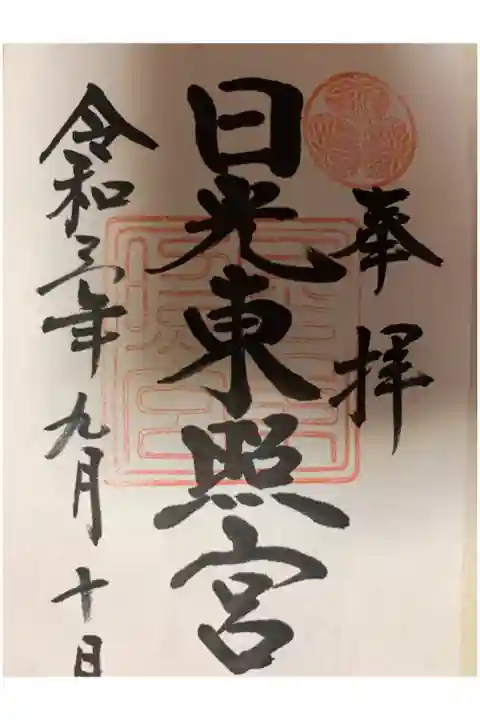 奉拝
日光東照宮
令和三年九月十日